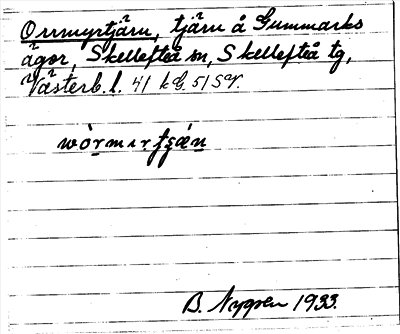 Orrmyrtjärn, tjärn å Gummarks
ägor, Skellefteå sn, Skellefteå tg,
Västerb. l. 41 kG. 515Y.
wòrmırʈʂæ̀n
B. Nygren 1933.